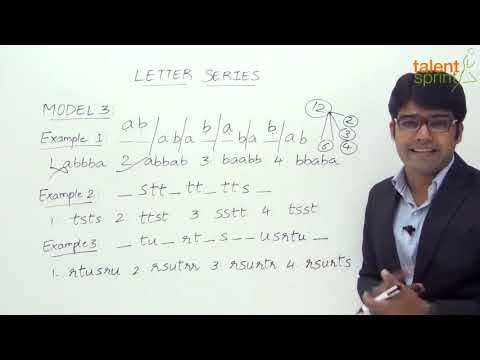 talent
sprint
LETTER SERIES
MODEL 3:
a b / a b / a b / a b / a b / a b
12
2
3
6 4
Example 1
1. abbba 2 abbab 3 baabb 4. bbaba
Example 2 _ stt _ tt _ tts _
1. tsts 2 ttst 3 sstt 4 tsst
Example 3 _ tu _ rt _ s _ _ usrtu _
1. rtusru 2. rsutrr 3. rsurtr 4. rsurts